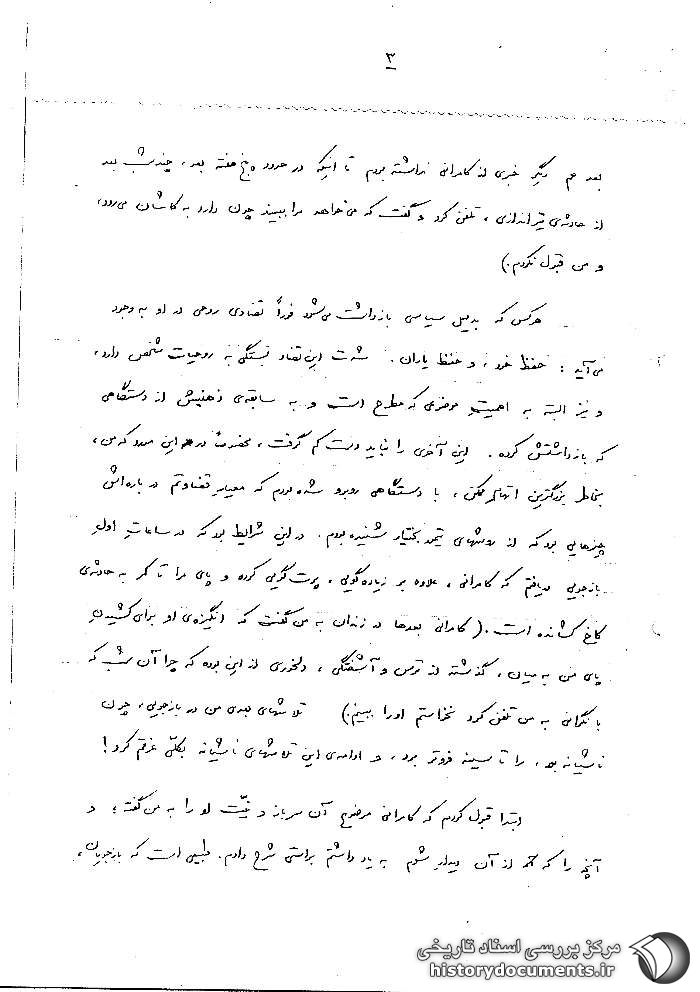 ۳
بعد هم دیگر خبری از کامرانی نداشته بودم تا اینکه در حدود پنج هفته بعد، چند شب بعد
از حادثه‌ی تیراندازی، تلفن کرد و گفت که می‌خواهد مرا ببیند چون دارد به کاشان می‌رود،
و من قبول نکردم.)
هرکس که بدلیل سیاسی بازداشت می‌شود فوراً تضادی روحی در او به وجود
می‌آید: حفظ خود، و حفظ یاران. شدت این تضاد بستگی به روحیات شخص دارد،
و نیز البته به اهمیت موضوعی که مطرح است و به سابقه‌ی ذهنیش از دستگاهی
که بازداشتش کرده. این آخری را نباید دست کم گرفت، بخصوص در این مورد که من،
بخاطر بزرگترین اتهام ممکن، با دستگاهی روبرو شده بودم که معیار قضاوتم درباره‌اش
چیزهایی بود که از روشهای تیمور بختیار شنیده بودم. در این شرایط بود که در ساعات اول
بازجویی دریافتم که کامرانی، علاوه بر زیاده‌گویی، پرت‌گویی کرده و پای مرا تا کمر به حادثه‌ی
کاخ کشانده است. (کامرانی بعدها در زندان به من گفت که انگیزه‌ی او برای کشیدن
پای من به میان، گذشته از ترس و آشفتگی، دلخوری از این بوده که چرا آن شب که
با نگرانی به من تلفن کرد نخواستم او را ببینم.) تلاشهای بعدی من در بازجویی، چون
ناشیانه بود، مرا تا سینه فروتر برد، و ادامه‌ی این تلاشهای ناشیانه بکلی غرقم کرد!
ابتدا قبول کردم که کامرانی موضوع آن سرباز و نیّت او را به من گفته؛ و
آنچه را که از آن دیدار شوم به یاد داشتم براستی شرح دادم. طبیعی است که بازجویان،
مرکز بررسی اسناد تاریخی
historydocuments.ir